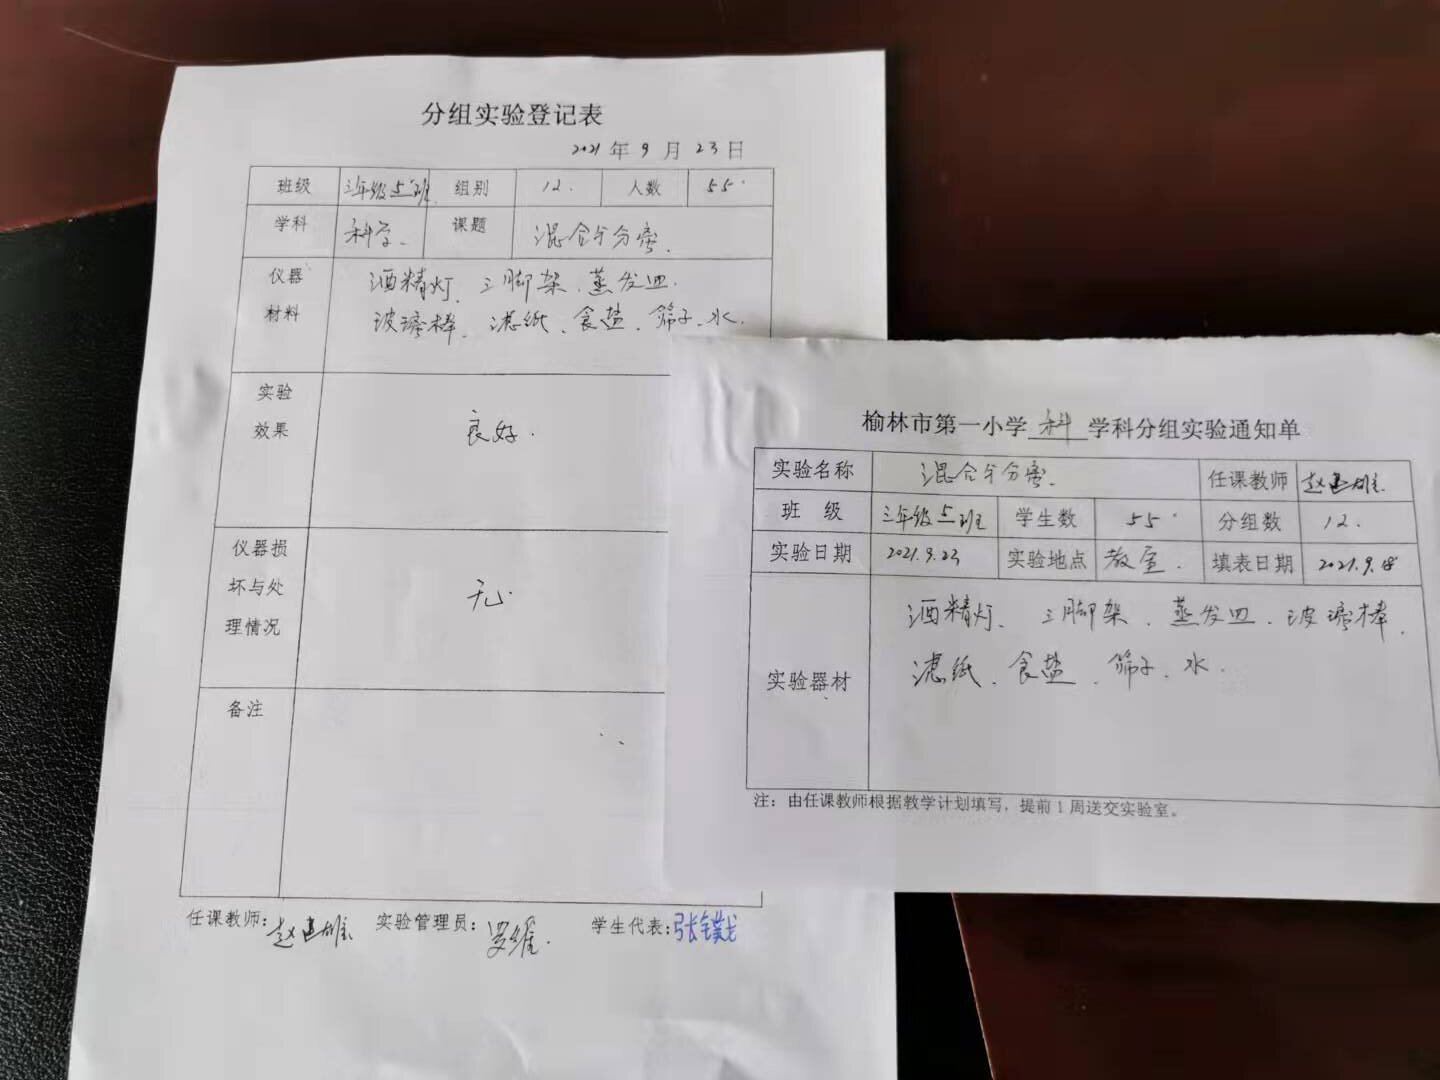 分组实验登记表
2021年9月23日
班级 三年级5班 组别 12. 人数 55
学科 科学. 课题 混合与分离.
仪器材料 酒精灯、三脚架、蒸发皿.
玻璃棒、滤纸、食盐、筛子、水.
实验效果 良好.
仪器损坏与处理情况 无.
备注
任课教师: 赵 雄 实验管理员: 罗维. 学生代表: 张
榆林市第一小学 科 学科分组实验通知单
实验名称 混合与分离. 任课教师 赵 雄.
班 级 三年级5班 学生数 55 分组数 12.
实验日期 2021.9.23 实验地点 教室. 填表日期 2021.9.18
实验器材 酒精灯、三脚架、蒸发皿、玻璃棒、
滤纸、食盐、筛子、水.
注：由任课教师根据教学计划填写，提前1周送交实验室。